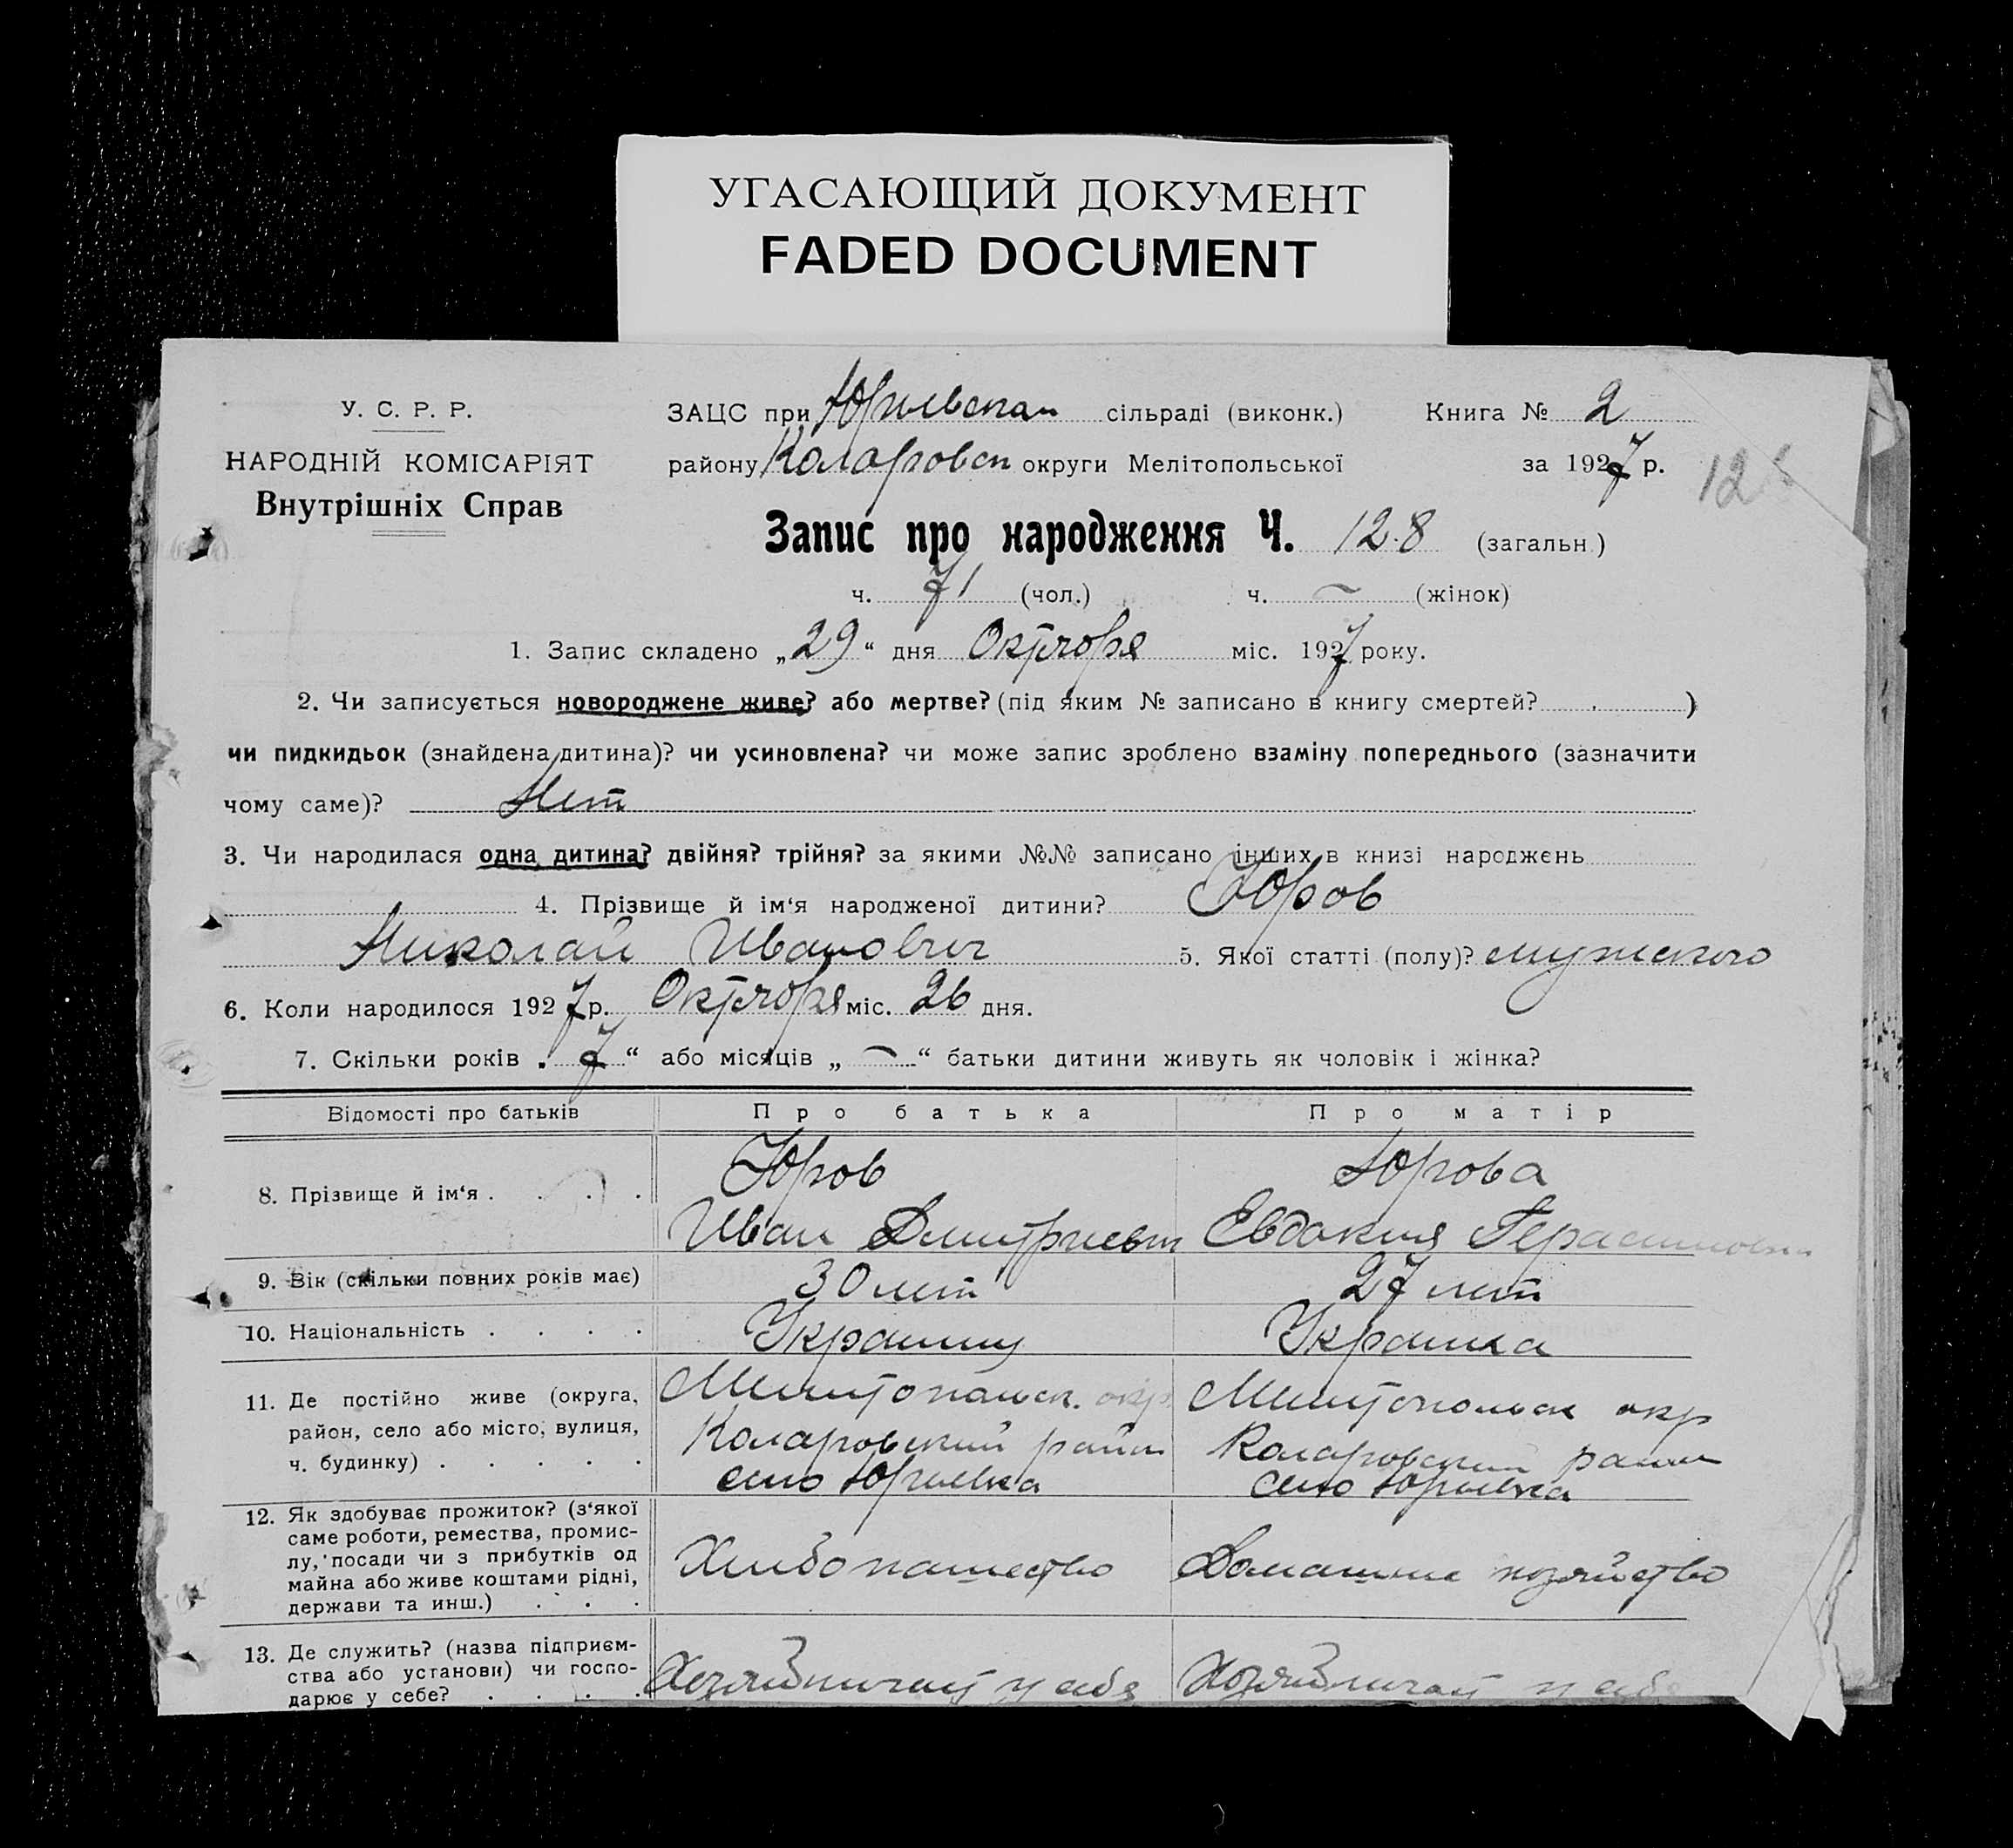 УГАСАЮЩИЙ ДОКУМЕНТ
FADED DOCUMENT
У. С. Р. Р.
НАРОДНІЙ КОМІСАРІЯТ
Внутрішніх Справ
ЗАЦС при Юрьевском сільраді (виконк.) Книга № 2
району Коларовск округи Мелітопольської за 1927 р.
Запис про народження Ч. 128 (загальн.)
ч. 71 (чол.) ч. — (жінок)
1. Запис складено „29“ дня Октября міс. 1927 року.
2. Чи записується новороджене живе? або мертве? (під яким № записано в книгу смертей? )
чи пидкидьок (знайдена дитина)? чи усиновлена? чи може запис зроблено взаміну попереднього (зазначити
чому саме)? Нет
3. Чи народилася одна дитина? двійня? трійня? за якими №№ записано інших в книзі народжень
4. Прізвище й ім‘я народженої дитини? Юров
Николай Иванович 5. Якої статті (полу)? мужского
6. Коли народилося 1927 р. Октября міс. 26 дня.
7. Скільки років „7“ або місяців „—“ батьки дитини живуть як чоловік і жінка?
Відомості про батьків Про батька Про матір
8. Прізвище й ім‘я . . . . Юров Юрова
Иван Дмитриевич Евдокия Герасимовна
9. Вік (скільки повних років має) 30 лет 27 лет
10. Національність . . . . Украинец Украинка
11. Де постійно живе (округа, Мелитопольск. окр. Мелитопольск окр
район, село або місто, вулиця, Коларовский район Коларовский район
ч. будинку) . . . . . село Юрьевка село Юрьевка
12. Як здобуває прожиток? (з‘якої
саме роботи, ремества, промис-
лу, посади чи з прибутків од Хлебопашество Домашнее хозяйство
майна або живе коштами рідні,
держави та инш.) . . .
13. Де служить? (назва підприєм-
ства або установи) чи госпо- Хозяйничает у себя Хозяйничает у себя
дарює у себе? . . . .